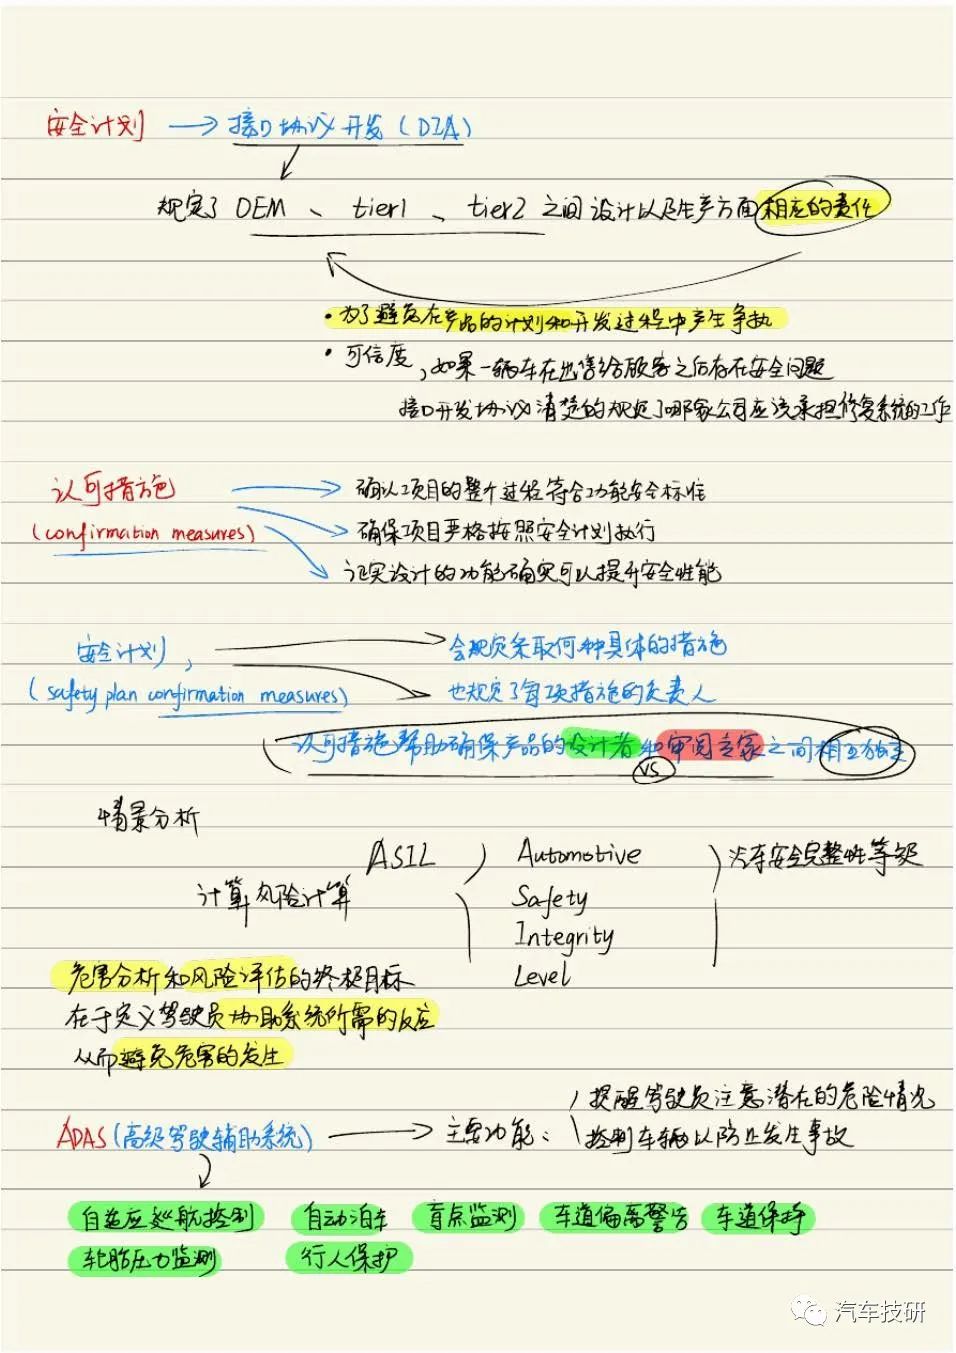 安全计划 → 接口协议开发（DIA）
规定了 OEM 、 tier1 、 tier2 之间设计以及生产方面相应的责任
• 为了避免在产品的计划和开发过程中产生争执
• 可信度，如果一辆车在出售给顾客之后存在安全问题
接口开发协议清楚的规定了哪家公司应该承担修复系统的工作
认可措施 → 确认项目的整个过程符合功能安全标准
(confirmation measures) → 确保项目严格按照安全计划执行
证实设计的功能确实可以提升安全性能
安全计划， → 会规定采取何种具体的措施
(safety plan confirmation measures) → 也规定了每项措施的负责人
认可措施帮助确保产品的设计者和审阅专家之间相互独立
VS
情景分析
ASIL Automotive 汽车安全完整性等级
计算风险计算 Safety
Integrity
Level
危害分析和风险评估的终极目标
在于定义驾驶员协助系统所需的反应
从而避免危害的发生
提醒驾驶员注意潜在的危险情况
ADAS(高级驾驶辅助系统) → 主要功能： 控制车辆以防止发生事故
自适应巡航控制 自动泊车 盲点监测 车道偏离警告 车道保持
轮胎压力监测 行人保护
汽车技研